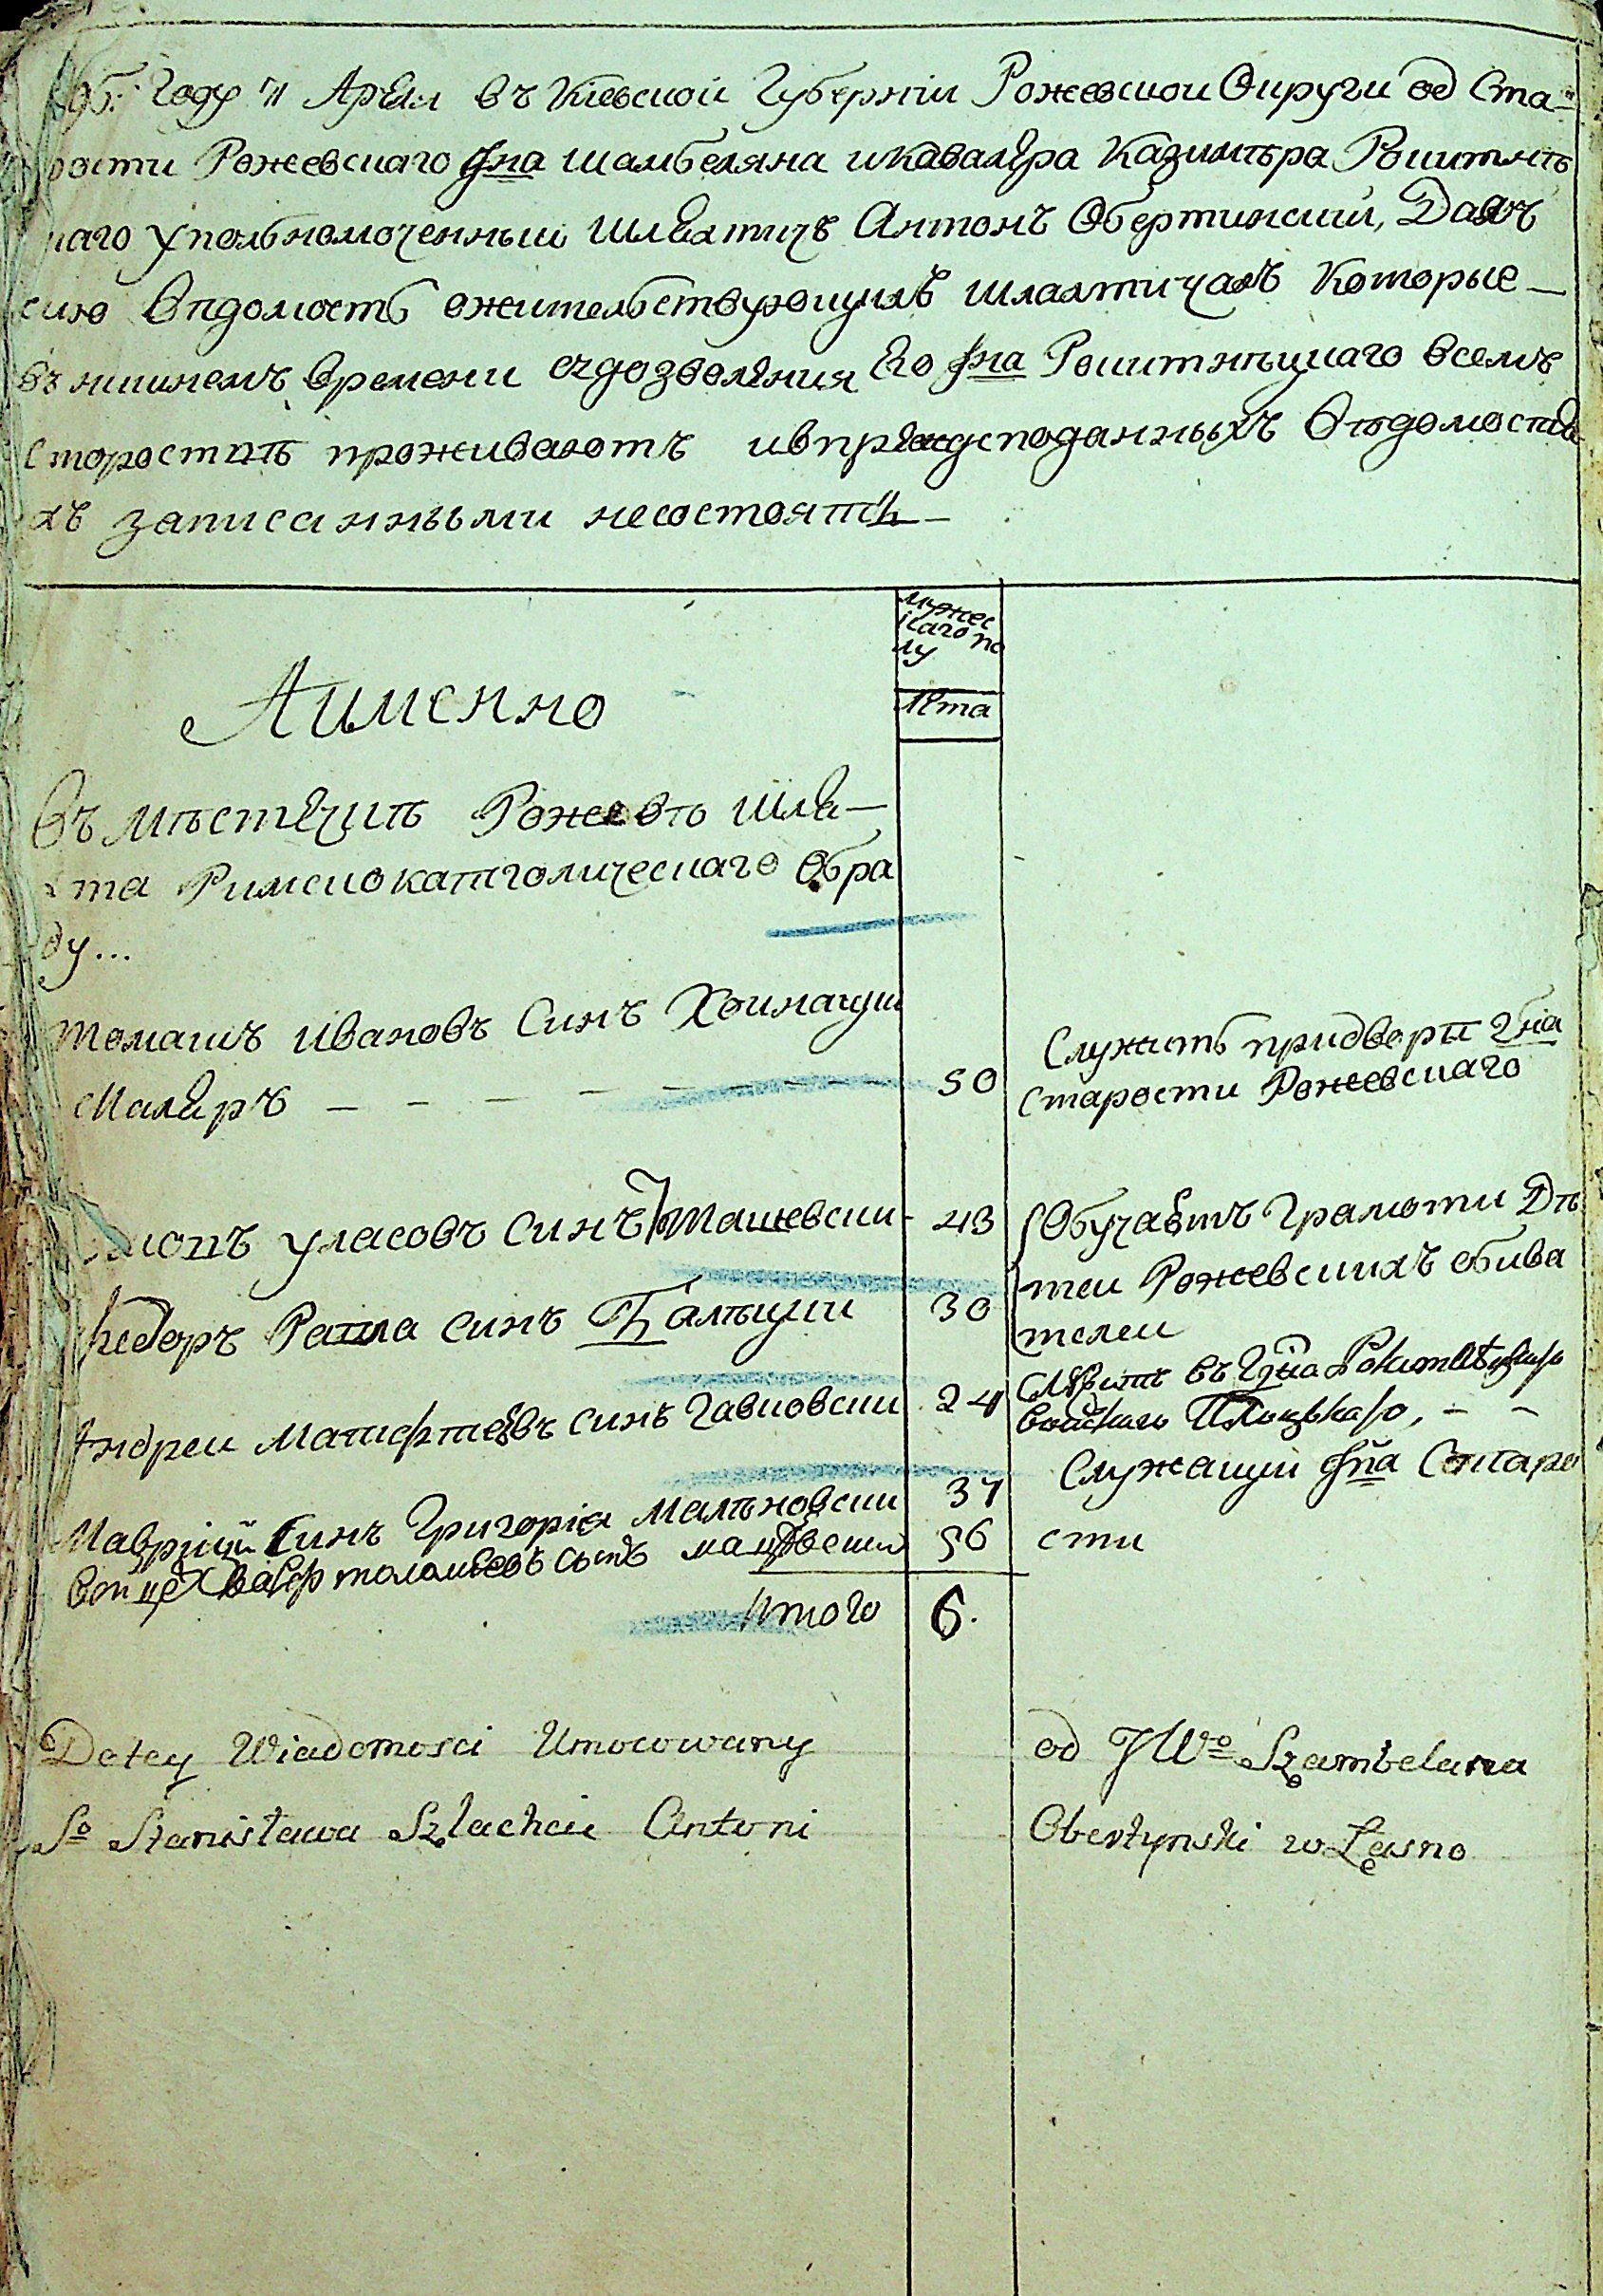 95: Году 11 Апреля въ Киевской Губернии Рожевской Округи од Ста-
рости Рожевскаго Гна шамбеляна и кавалера Казимѣра Рокитнѣ
цкаго Уполномоченный Шляхтичъ Антонъ Обертинский, Даю
сию Вѣдомость о жительствующихъ шляхтичахъ Которые
въ нинѣшнемъ времени съ дозволения Его Гна Рокитнѣцкаго в семъ
Старостве проживаютъ и в преждеподанныхъ Вѣдомостя
хъ записанными не состоятъ
мужес
каго по
лу
Лета
А именно
Въ мѣстечке Рожеве Шля-
хта Римскокатголическаго Обра
ду...
Томашъ Ивановъ Синъ Хоинацки
Маляръ
50
Служитъ при дворе Гна
Старости Рожевскаго
уласовъ синъ Томашевски
43
Обучаетъ Грамоти Дѣ
теи Рожевскихъ обива
телеи
Федоръ синъ Балыцки
30
Андреи Матфтеевъ синъ Гавловски
24
Служитъ въ Гдна Рокитнѣцкаго
Маврици Синъ Григория Малиновски
37
Служащии Гна Старо
сти
Воицех Варфтоломеевъ сынъ
56
Итого
6.
Detey Wiadomosci Umocowany
od JWo Szambelana
So Stanisława Szlachcic Antoni
Obertynski